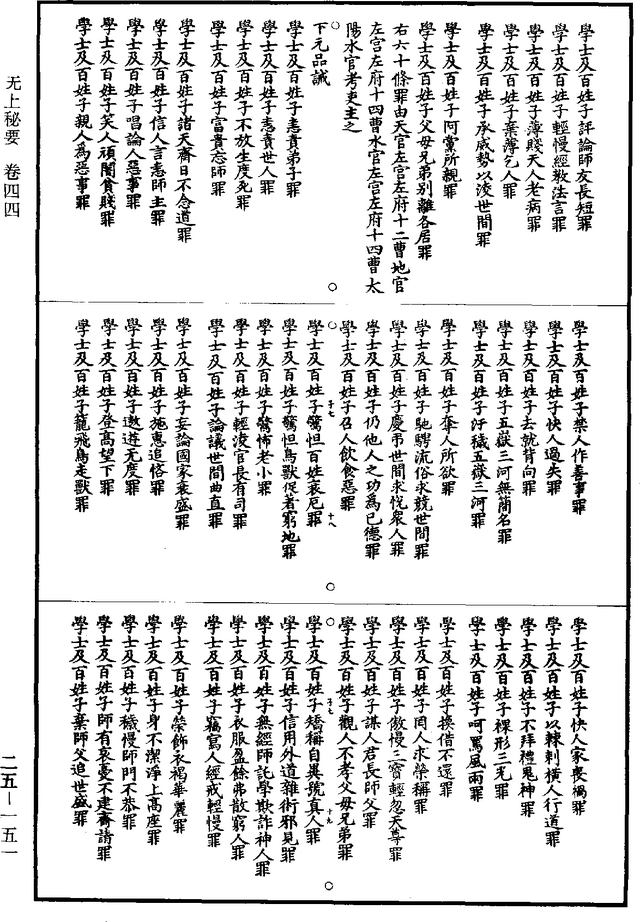 學士及百姓子評論師友長短罪
學士及百姓子輕慢經教法言罪
學士及百姓子薄賤天人老病罪
學士及百姓子棄薄乞人罪
學士及百姓子承威勢以淩世間罪
學士及百姓子阿黨所親罪
學士及百姓子父母兄弟別離各居罪
右六十條罪由天官左宮左府十二曹地官
左宮左府十四曹水官左宮左府十四曹太
陽水官考吏主之
下元品誡
學士及百姓子恚責弟子罪
學士及百姓子恚責世人罪
學士及百姓子不放生度死罪
學士及百姓子富貴忘師罪
學士及百姓子諸天齋日不念道罪
學士及百姓子信人言恚師主罪
學士及百姓子唱論人惡事罪
學士及百姓子笑人頑闇貧賤罪
學士及百姓子親人為惡事罪
學士及百姓子禁人作善事罪
學士及百姓子快人過失罪
學士及百姓子去就背向罪
學士及百姓子五嶽三河無簡名罪
學士及百姓子汙穢五嶽三河罪
學士及百姓子奪人所欲罪
學士及百姓子馳騁流俗求競世間罪
學士及百姓子慶弔世間求悅衆人罪
學士及百姓子仍他人之功為己德罪
學士及百姓子召人飲食惡罪
學士及百姓子驚怛百姓衰厄罪
學士及百姓子驚怛鳥獸促著窮地罪
學士及百姓子驚怖老小罪
學士及百姓子輕淩官長有司罪
學士及百姓子論議世間曲直罪
學士及百姓子妄論國家衰盛罪
學士及百姓子施惠追悋罪
學士及百姓子遨遊无度罪
學士及百姓子登高望下罪
學士及百姓子籠飛鳥走獸罪
學士及百姓子快人家喪禍罪
學士及百姓子以棘刺橫人行道罪
學士及百姓子不拜禮鬼神罪
學士及百姓子裸形三光罪
學士及百姓子呵罵風雨罪
學士及百姓子換借不還罪
學士及百姓子罔人求榮稱罪
學士及百姓子傲慢三寶輕忽天尊罪
學士及百姓子謀人君長師父罪
學士及百姓子觀人不孝父母兄弟罪
學士及百姓子矯稱自異號真人罪
學士及百姓子信用外道雜術邪見罪
學士及百姓子無經師託學欺詐神人罪
學士及百姓子衣服盈餘弗散窮人罪
學士及百姓子竊寫人經戒輕慢罪
學士及百姓子榮飾衣褐華麗罪
學士及百姓子身不潔淨上高座罪
學士及百姓子穢慢師門不恭罪
學士及百姓子師有哀憂不建齋請罪
學士及百姓子棄師父追世盛罪
无上秘要 卷四四
二五－一五一